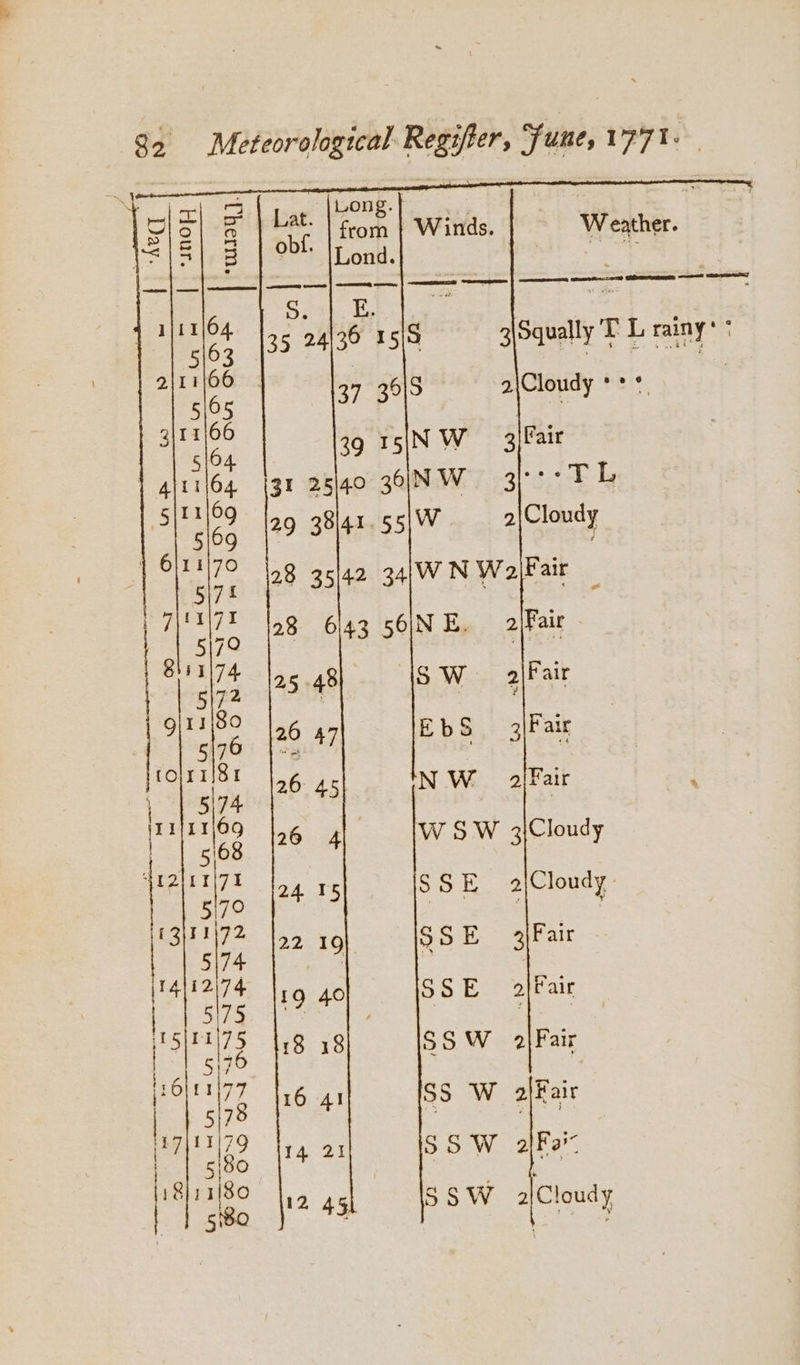 82 Meteorological Regiſter, June, 1771.
Day. | Hour. | Therm. | Lat. obſ. | Long. from Lond. | Winds. | Weather.
S. | E.
1|11|64 |35 24|36 15|S 3|Squally T L rainy
5|63
2|11|66 |37 36|S 2|Cloudy
5|65
3|11|66 |39 15|N W 3|Fair
5|64
4|11|64 |31 25|40 36|N W 3|---T L
5|11|69 |29 38|41 55|W 2|Cloudy
5|69
6|11|70 |28 35|42 34|W N W 2|Fair
5|71
7|11|71 |28 6|43 56|N E. 2|Fair
5|70
8|11|74 |25 48| S W 2|Fair
5|72
9|11|80 |26 47| E b S 3|Fair
5|76
10|11|81 |26 45| N W 2|Fair
5|74
11|11|69 |26 4| W S W 3|Cloudy
5|68
12|11|71 |24 15| S S E 2|Cloudy
5|70
13|11|72 |22 19| S S E 3|Fair
5|74
14|12|74 |19 40| S S E 2|Fair
5|75
15|11|75 |18 18| S S W 2|Fair
5|76
16|11|77 |16 41| SS W 2|Fair
5|78
17|11|79 |14 21| S S W 2|Fair
5|80
18|11|80 |12 45| S S W 2|Cloudy
5|80